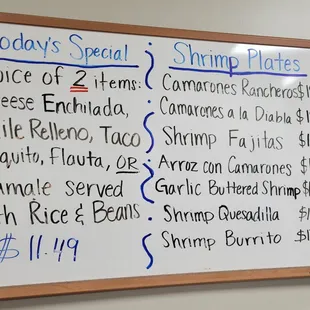 oday's Special
oice of 2 items:
eese Enchilada,
ile Relleno, Taco
quito, Flauta, OR
amale served
th Rice & Beans
$ 11.49
Shrimp Plates
Camarones Rancheros $1
Camarones a la Diabla $1
Shrimp Fajitas $1
Arroz con Camarones $1
Garlic Buttered Shrimp $1
Shrimp Quesadilla $1
Shrimp Burrito $1